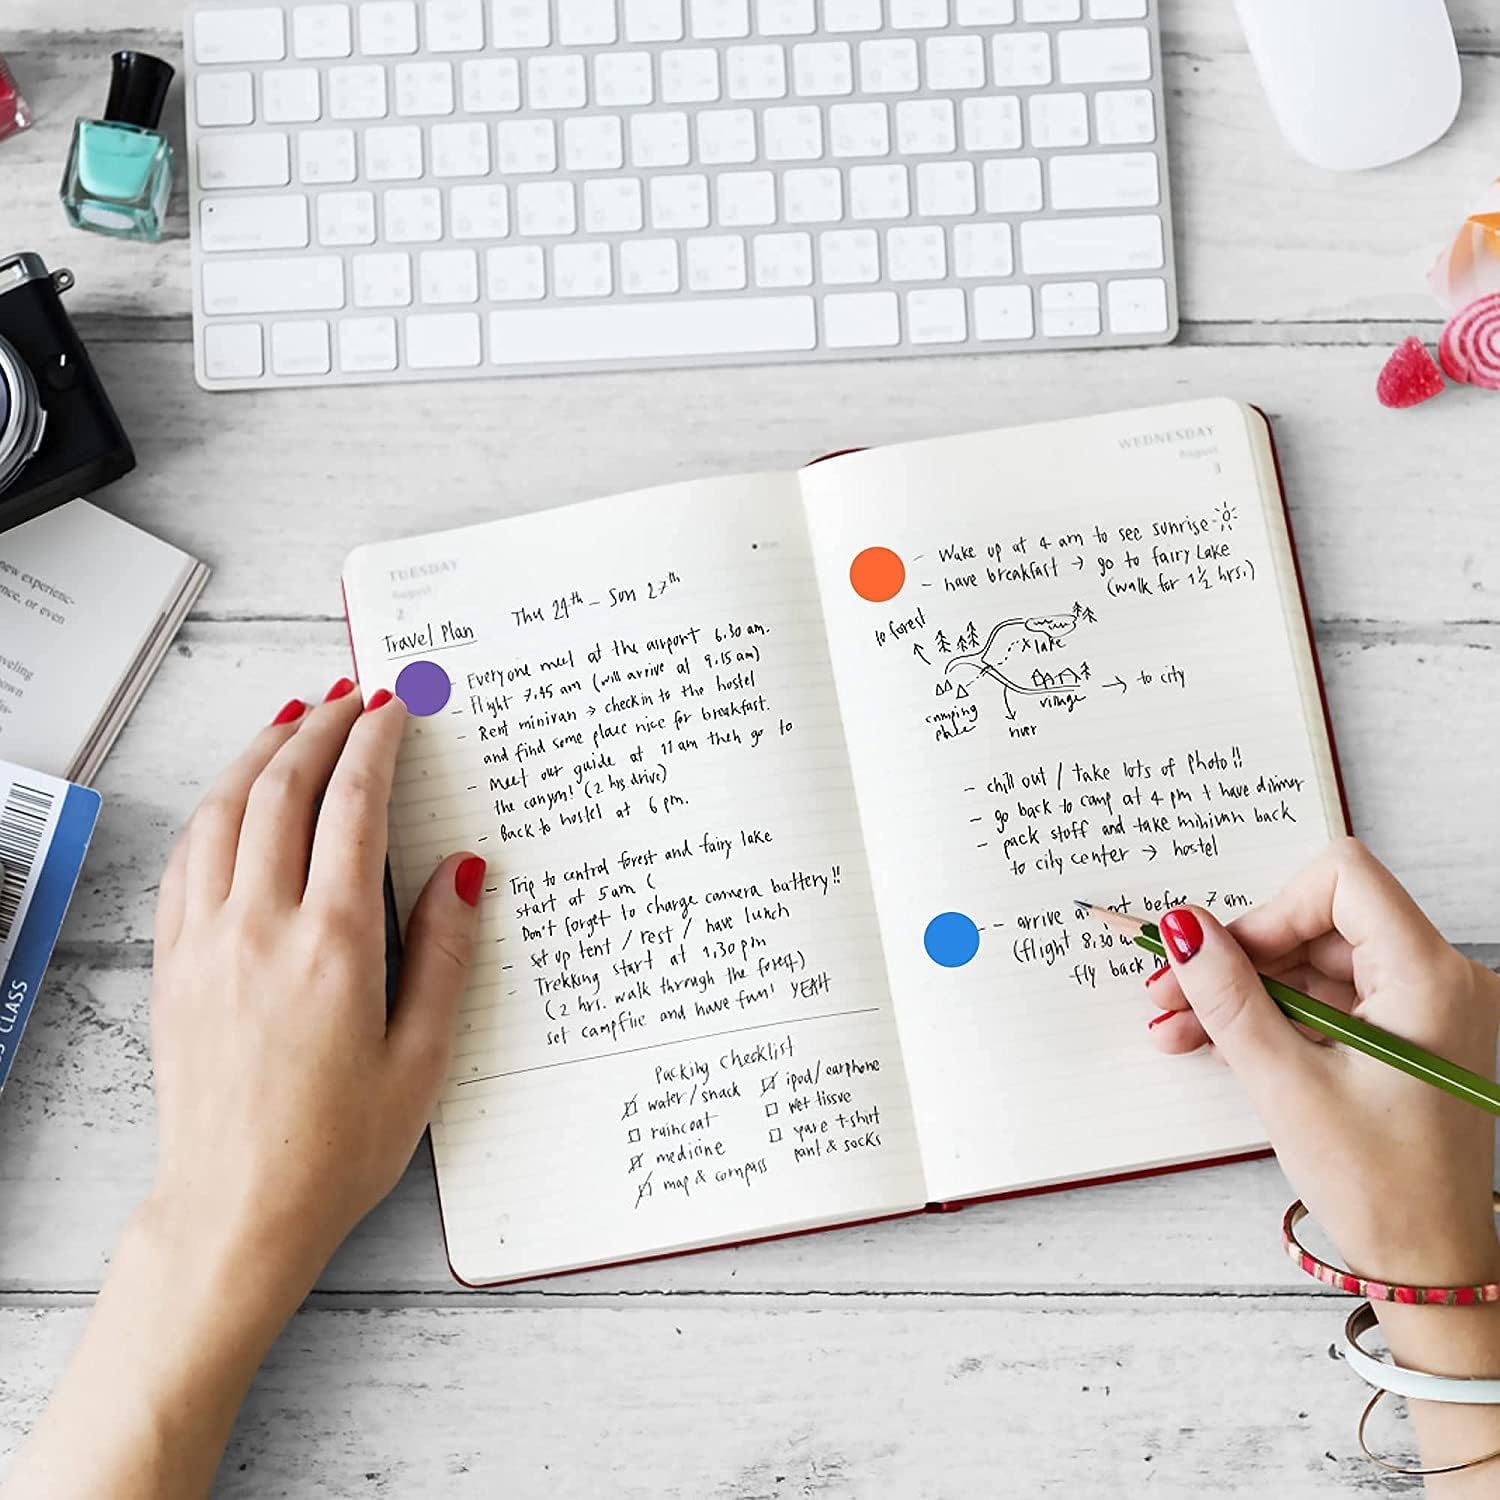 TUESDAY
August
2
Thu 24th - Sun 27th
Travel Plan
- Everyone meet at the airport 6.30 am.
- Flight 7.45 am (will arrive at 9.15 am)
- Rent minivan → check in to the hostel
and find some place nice for breakfast.
- Meet our guide at 11 am then go to
the canyon! (2 hrs. drive)
- Back to hostel at 6 pm.
- Trip to central forest and fairy lake
start at 5 am (
- Don't forget to charge camera battery!!
- Set up tent / rest / have lunch
- Trekking start at 1,30 pm
(2 hrs. walk through the forest)
set campfire and have fun! YEAH
Packing Checklist
water / snack
raincoat
medicine
map & compass
ipod / earphone
wet tissue
t-shirt
pant & socks
WEDNESDAY
August
3
- Wake up at 4 am to see sunrise
- have breakfast → go to fairy Lake
(walk for 1½ hrs.)
to forest
x lake
camping
village
→ to city
river
- chill out / take lots of photo!!
- go back to camp at 4 pm + have dinner
- pack stuff and take minivan back
to city center → hostel
- arrive before 7 am.
(flight 8,30
fly back
new experienc-
ence, or even
aveling
CLASS